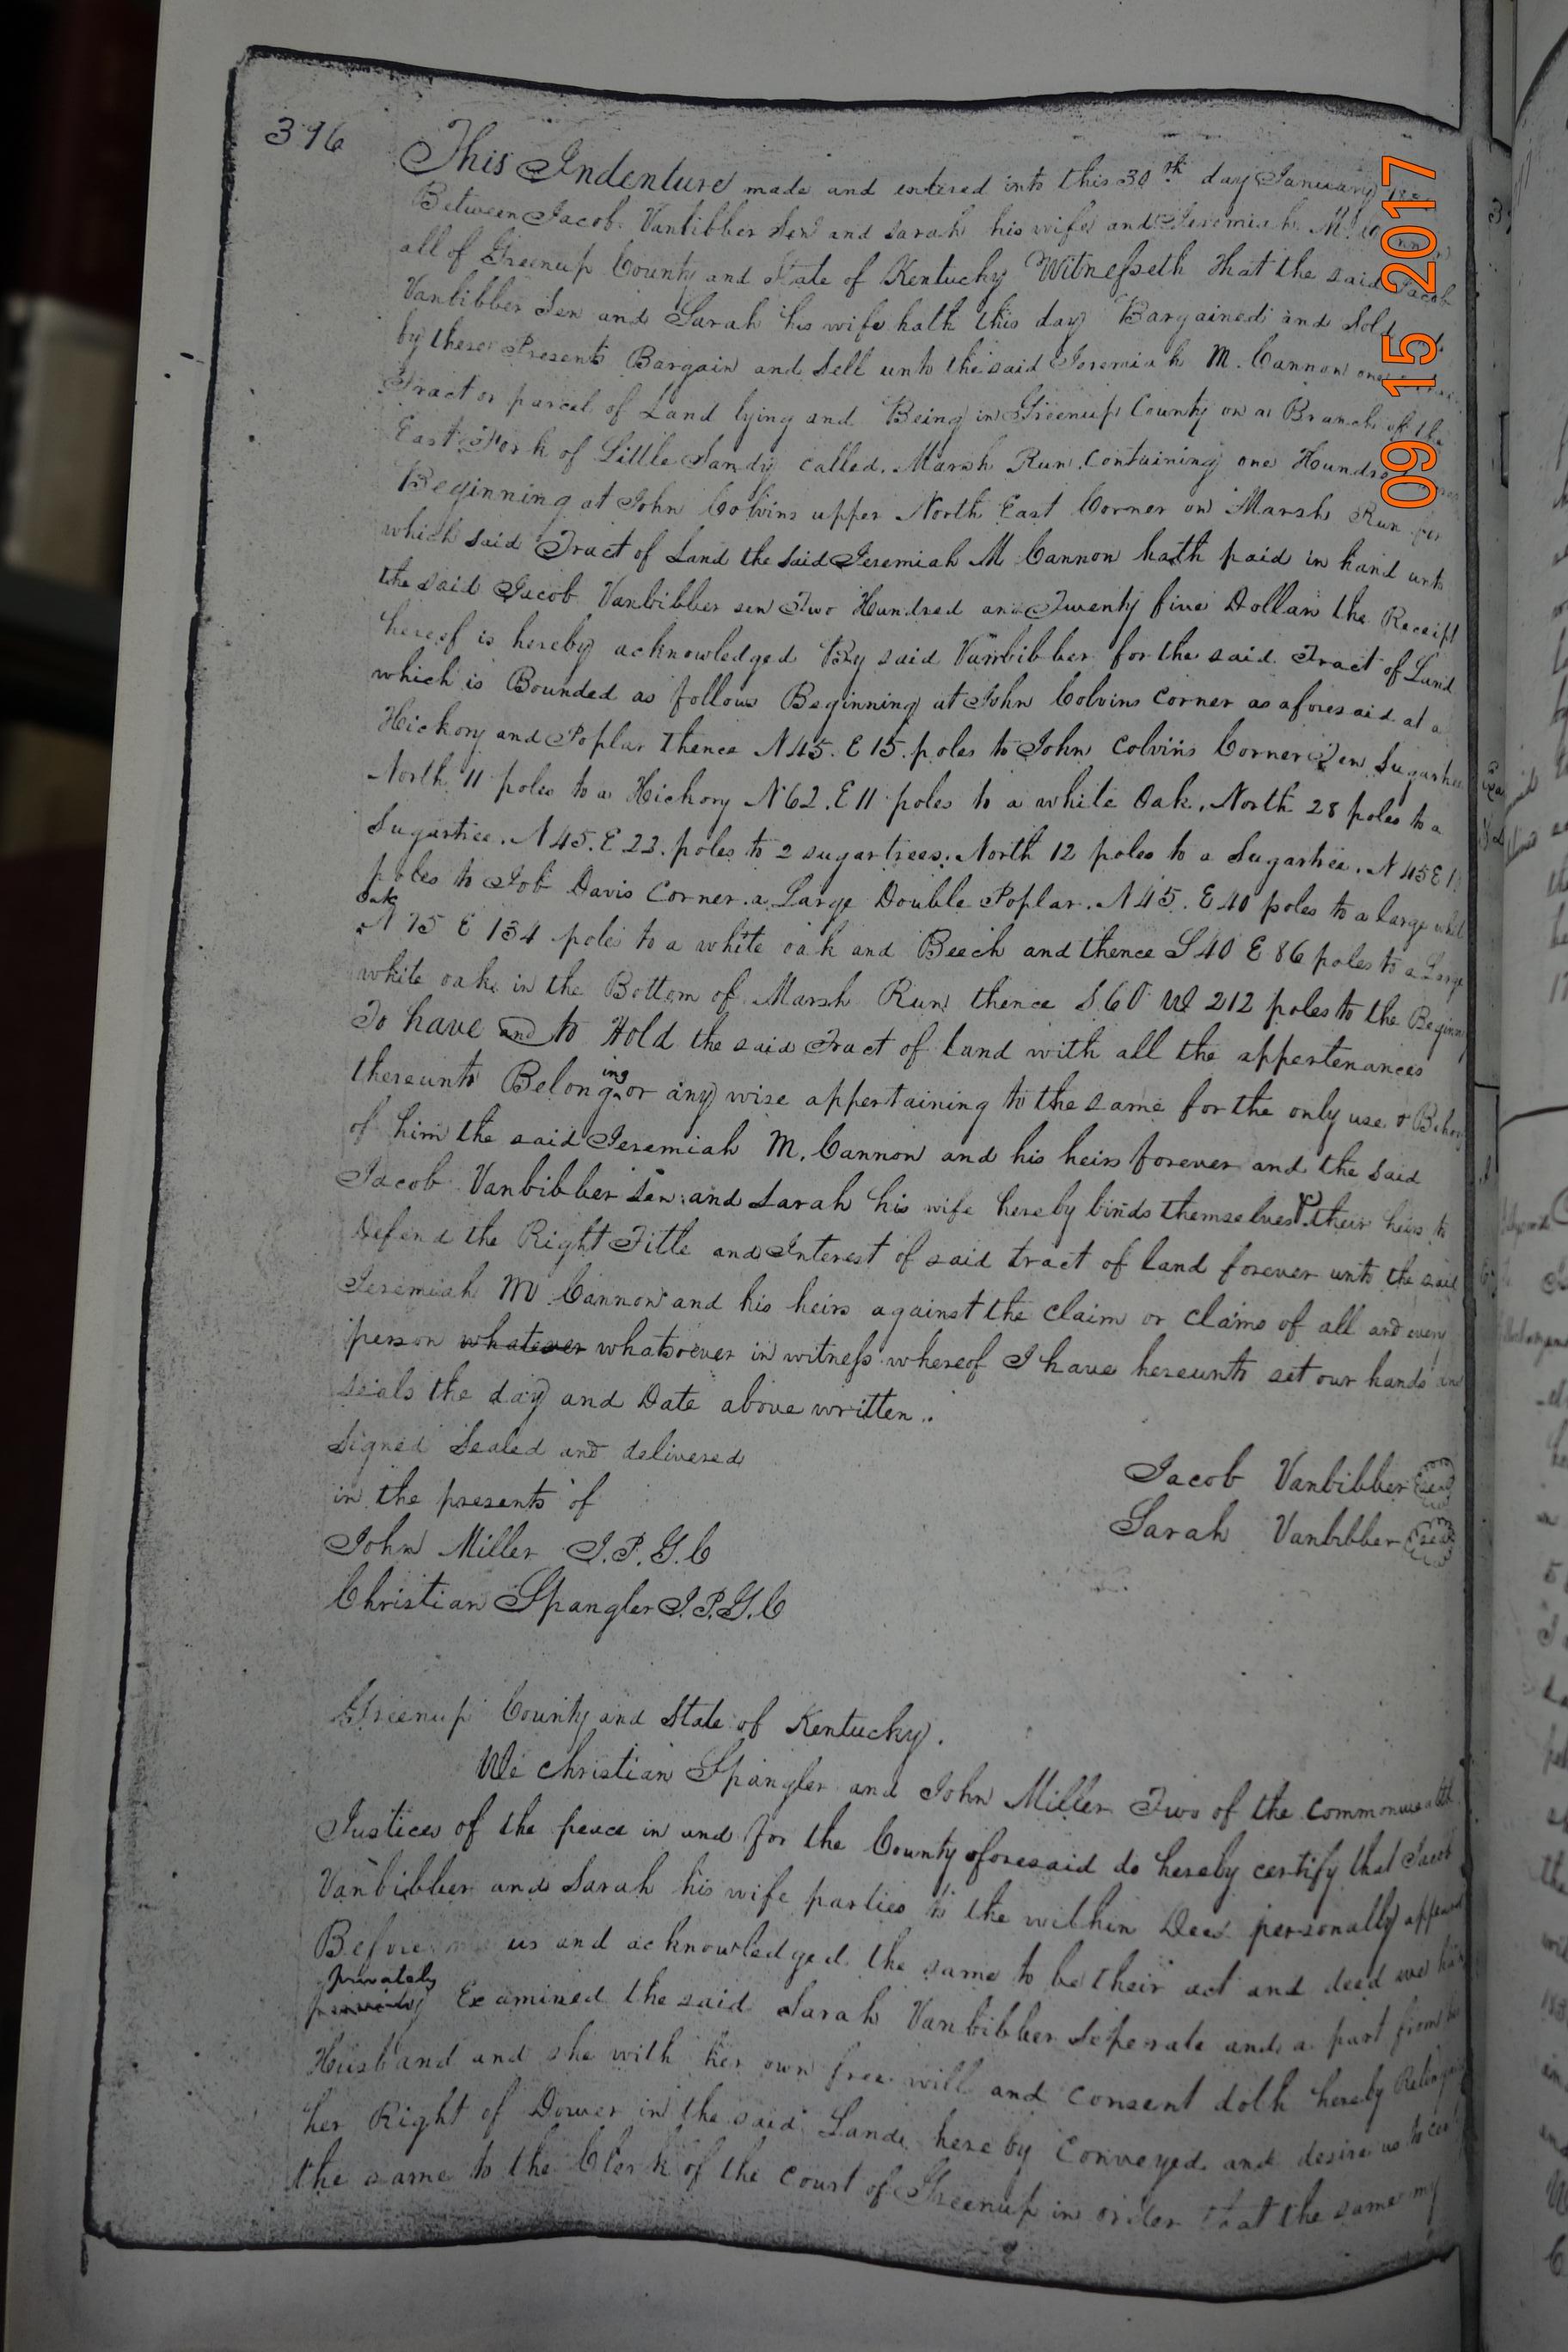 396
This Indenture made and entered into this 30th day January
Between Jacob Vanbibber Sen and Sarah his wife and Jeremiah M. Cannon
all of Greenup County and State of Kentucky Witnesseth that the said Jacob
Vanbibber Sen and Sarah his wife hath this day Bargained and Sold
by these Presents Bargain and Sell unto the said Jeremiah M. Cannon one
Tract or parcel of Land lying and Being in Greenup County on a Branch of the
East Fork of Little Sandy called Marsh Run Containing one Hundred
Beginning at John Colvins upper North East Corner on Marsh Run for
which said Tract of Land the said Jeremiah M Cannon hath paid in hand unto
the said Jacob Vanbibber sen Two Hundred and Twenty five Dollars the Receipt
hereof is hereby acknowledged By said Vanbibber for the said Tract of Land
which is Bounded as follows Beginning at John Colvins Corner as aforesaid at a
Hickory and Poplar thence N45. E 15. poles to John Colvins Corner Sugartree
North 11 poles to a Hickory N62. E 11 poles to a white Oak. North 28 poles to a
Sugartree. N45. E 22. poles to 2 sugartrees. North 12 poles to a Sugartree. N45 E
poles to Job Davis Corner. a Large Double Poplar. N45. E 40 poles to a large white
oak
N 75 E 134 poles to a white oak and Beech and thence S40 E 86 poles to a Large
white oak in the Bottom of Marsh Run thence S.60 W 212 poles to the Beginn
To have and to Hold the said Tract of land with all the appertenances
thereunto Belonging or any wise appertaining to the same for the only use & Behoof
of him the said Jeremiah M. Cannon and his heirs forever and the said
Jacob Vanbibber Sen. and Sarah his wife hereby binds themselves & their heirs to
Defend the Right Title and Interest of said tract of land forever unto the said
Jeremiah M Cannon and his heirs against the claim or claims of all and every
person whatever whatsoever in witness whereof I have hereunto set our hands and
seals the day and Date above written..
Signed Sealed and delivered
in the presents of
Jacob Vanbibber seal
John Miller J.P.G.C
Sarah Vanbibber seal
Christian Spangler J.P.G.C
Greenup County and State of Kentucky.
We Christian Spangler and John Miller Two of the Commonwealth
Justices of the peace in and for the County aforesaid do hereby certify that Jacob
Vanbibber and Sarah his wife parties to the within Deed personally appeared
Before us and acknowledged the same to be their act and deed we
privately
Examined the said Sarah Vanbibber Seperate and a part from
Husband and she with her own free will and consent doth hereby Relinquish
her Right of Dower in the said Land hereby Conveyed and desire us to
the same to the Clerk of the Court of Greenup in order that the same my
09 15 2017